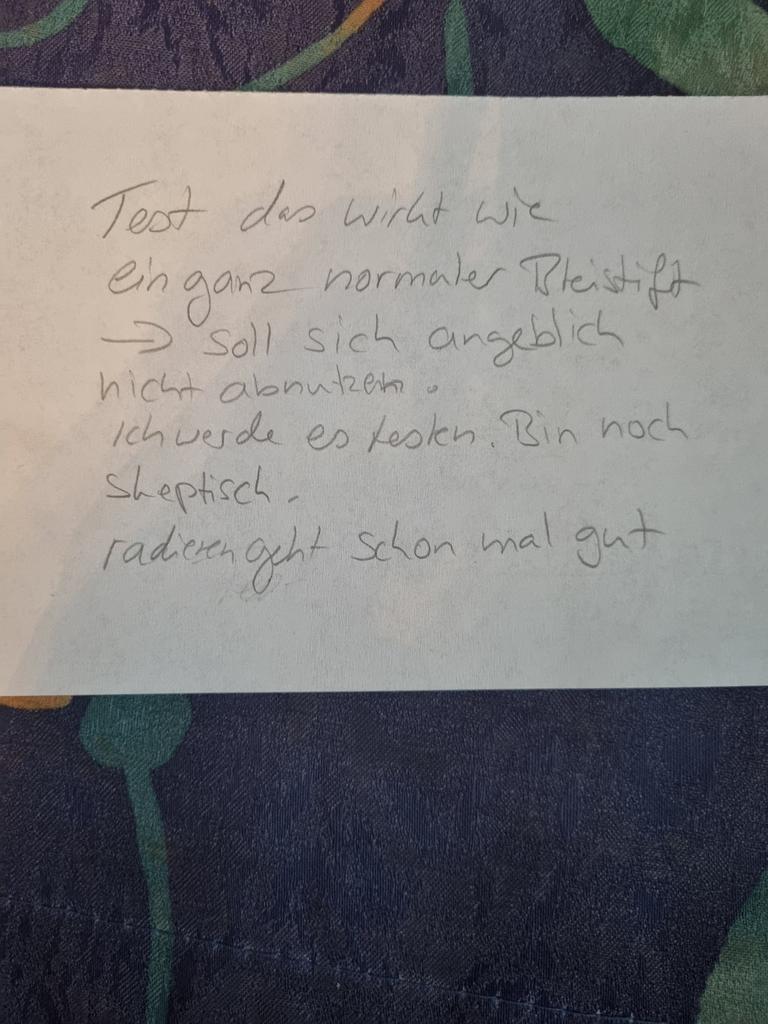 Test das wirkt wie
ein ganz normaler Bleistift
→ soll sich angeblich
nicht abnutzen.
Ich werde es testen. Bin noch
skeptisch.
radieren geht schon mal gut